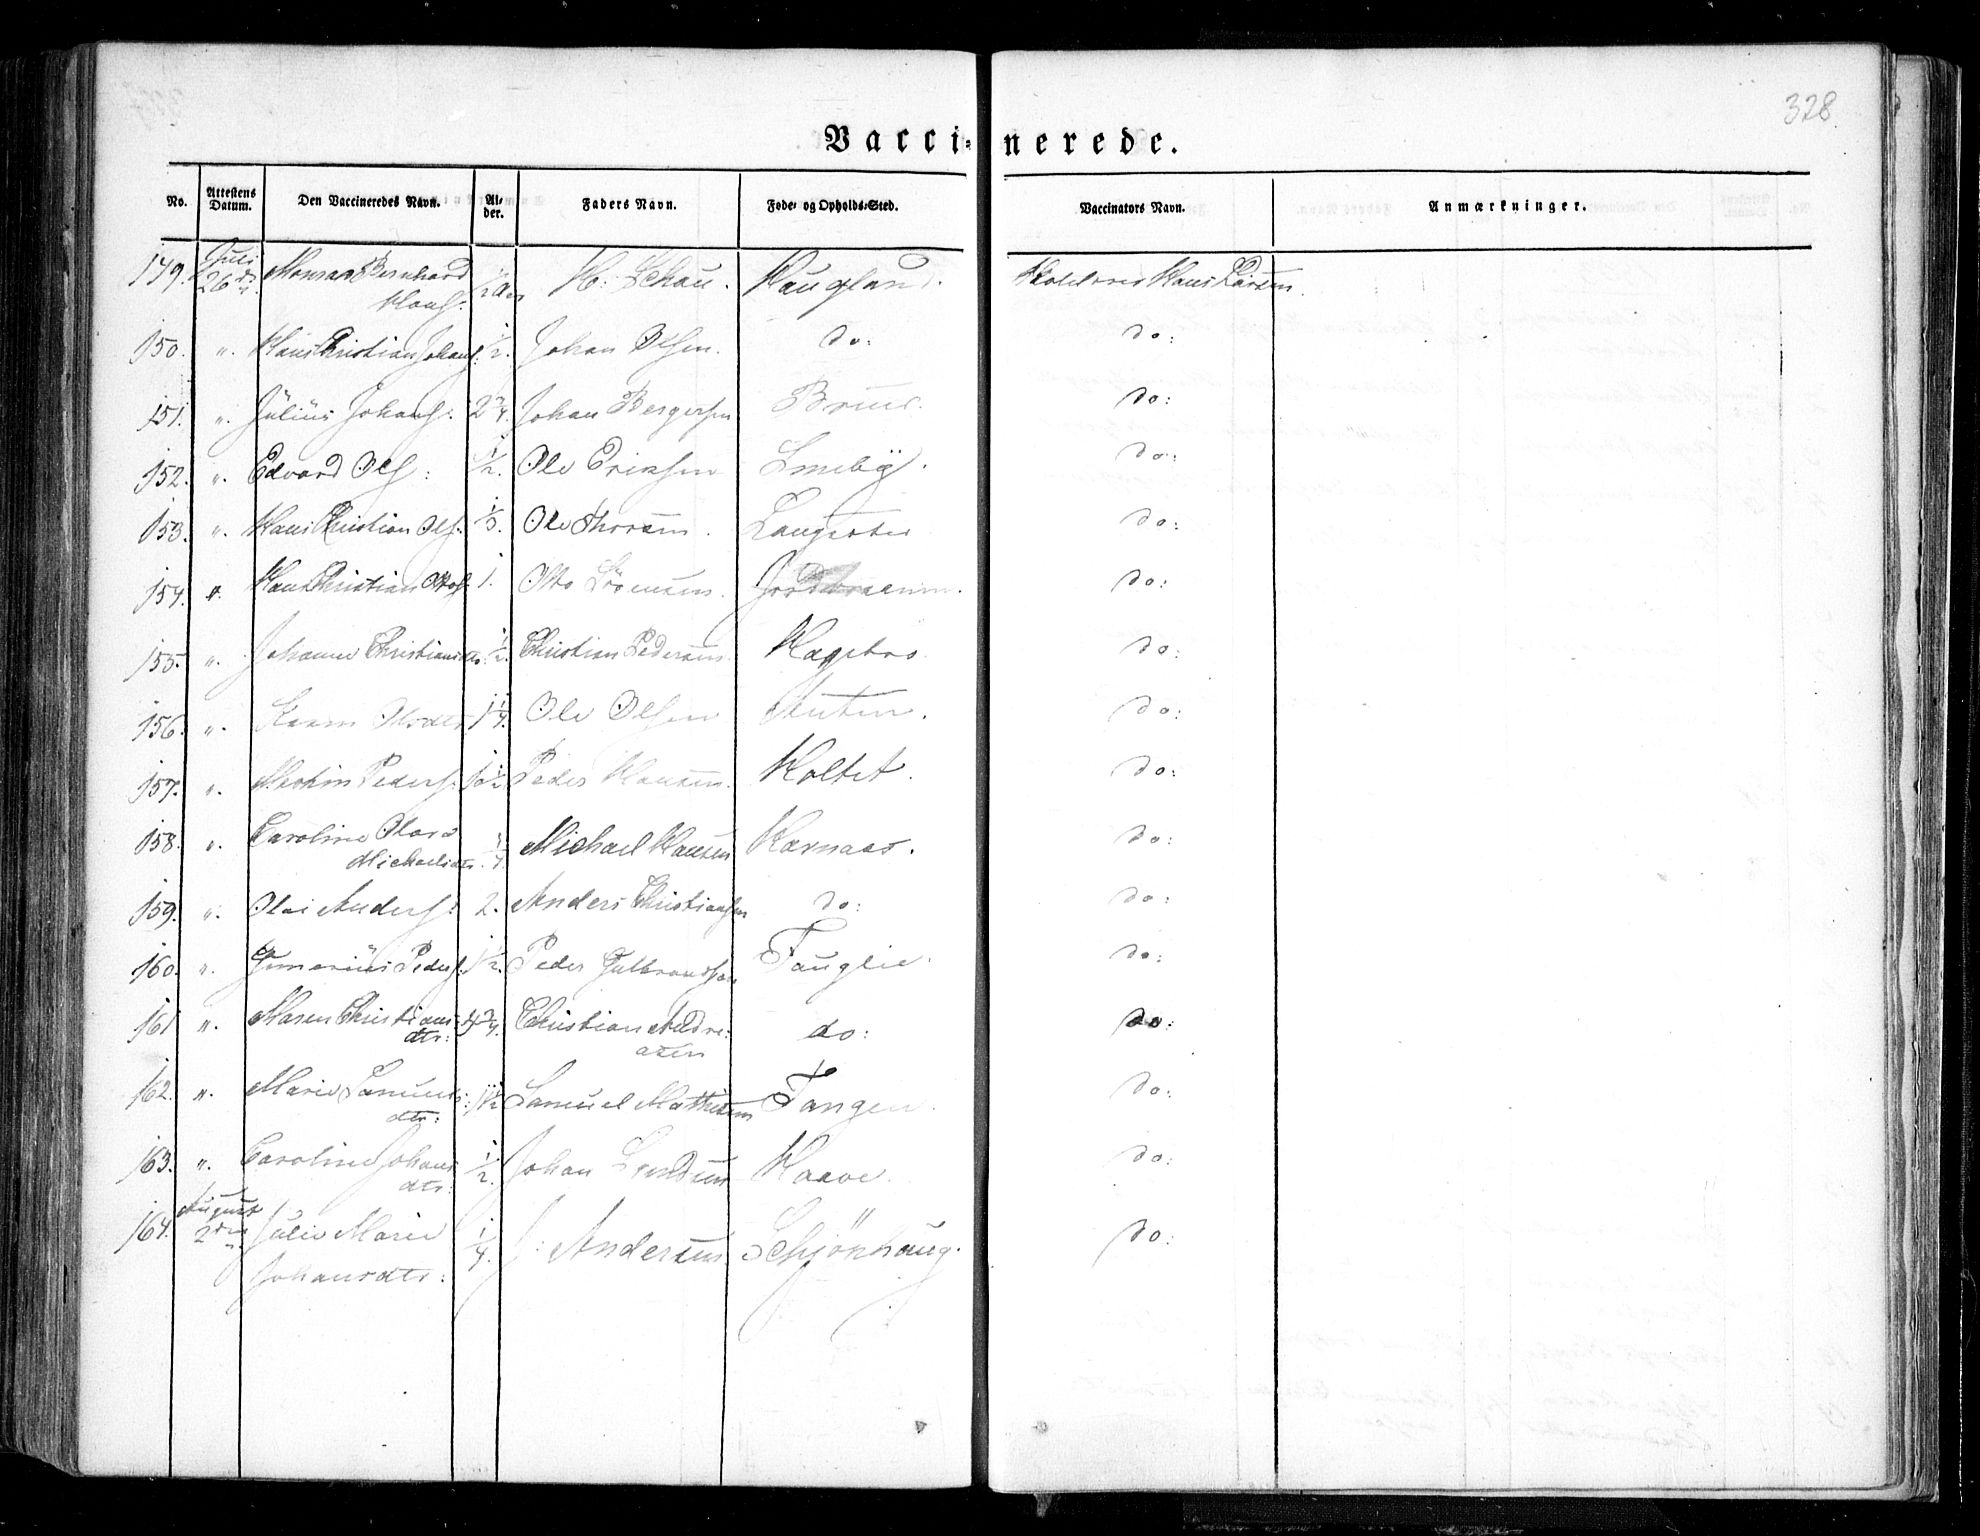 328
Vaccinerede.
No. Attestens Datum. Den Vaccineredes Navn. Alder. Faders Navn. Føde- og Opholds-Sted. Vaccinators Navn. Anmærkninger.
149. Juli 26de Bernhard Hansf. 1/2 H: Schau. Haugland. Hans Larsen
150. ". Hans Christian Johansf. 1/2. Johan Olsen. do: do:
151. ". Julius Johansf. 2 3/4. Johan Bergersen Bruer. do:
152. ". Edvard Olsf: 1/2. Ole Eriksen Smeby. do:
153. ". Hans Christian Olsf. 1/3. Ole Thorsen. do:
154. ". Hans Christian 1. Otto do:
155. ". Johanne Christiansdtr. 1/2. Christian Pedersen. Hagebro do:
156. ". Karen Olsdtr 1 1/4. Ole Olsen do:
157. ". Pedersf. 1/2 Peder Hansen. Holtet. do:
158. ". Caroline Olava Michaelsdtr. 1/4 Michael Hansen Kornaas. do:
159. ". Andersf. 2. Anders Christiansen do: do:
160. ". Pedersf. 1/2. Peder Gulbrandsen Fauglie. do:
161 ". Maren Christiansdtr: 4 3/4. Christian Andreasen do: do:
162. ". Marie Samuelsdtr: 1 1/2 Samuel Mathisen Tangen. do:
163. ". Caroline Johansdtr: 1/2. Johan Haave. do:
164. August 2den Julie Marie Johansdtr: 1/4. J: Andersen Schjönhaug. do: